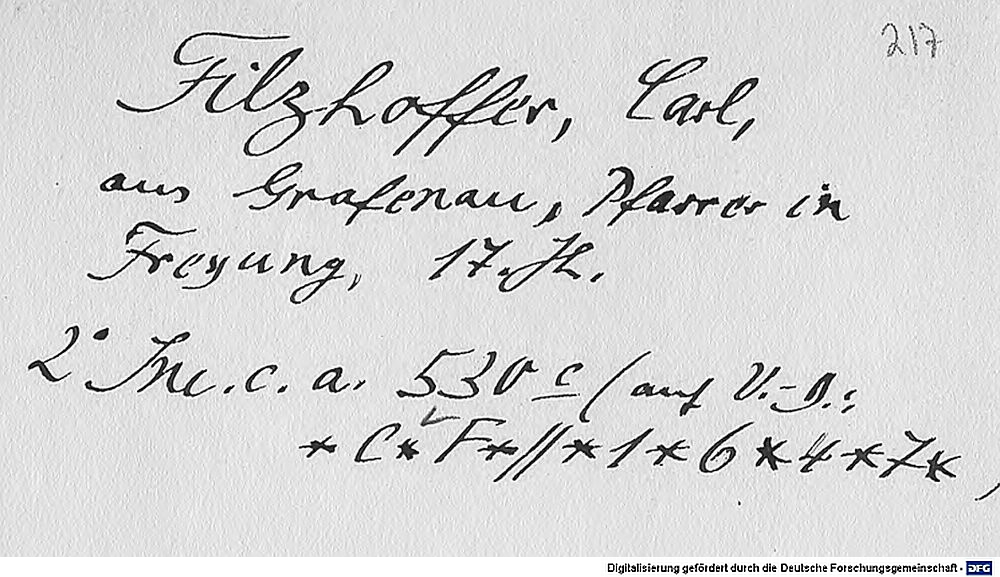 217
Filzhoffer, Carl,
aus Grafenau, Pfarrer in
Freyung, 17. Jh.
2° Inc. c. a. 530 c (auf V.-D.:
* C * F * // * 1 * 6 * 4 * 7 * )
Digitalisierung gefördert durch die Deutsche Forschungsgemeinschaft - DFG